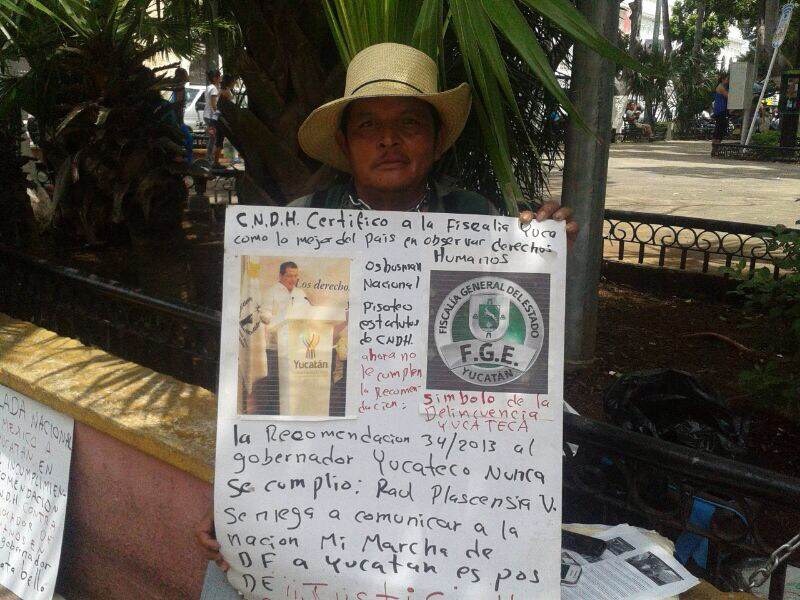 C.N.D.H. Certifico a la Fiscalia Yuca
como la mejor del Pais en observar derechos
Humanos
Los derecho
Yucatán
Osbusman
Nacional
Pisoteo
estatutos
de CNDH.
ahora no
le cumplen
la Recomen-
dacion:
FISCALÍA GENERAL DEL ESTADO
F.G.E.
YUCATÁN
simbolo de la
Delincuencia
YUCATECA
la Recomendacion 34/2013 al
gobernador Yucateco Nunca
Se cumplio: Raul Plascensia V.
Se niega a comunicar a la
nacion Mi Marcha de
DF a Yucatan es pos
DE
ADA NACIONAL
MEXICO A
EN
gobernador
bello